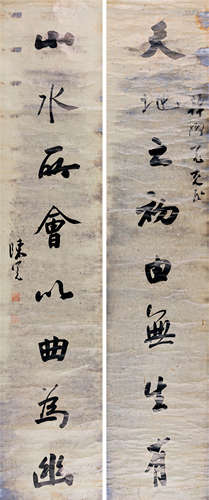 天地之初由無生有
山水所會以曲為幽
陳寬